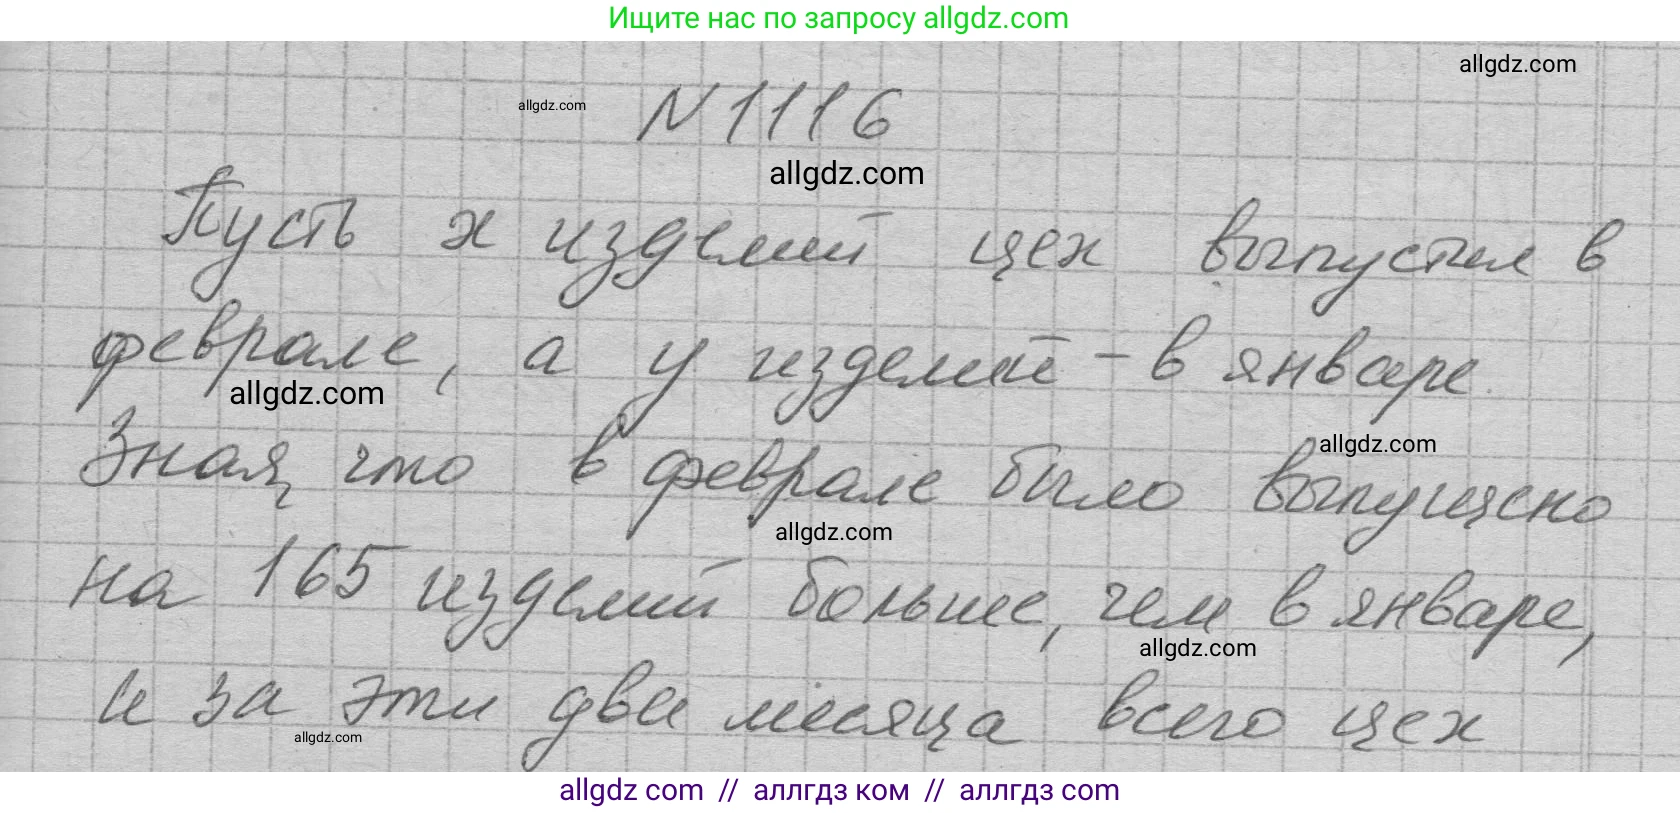 Ищите нас по запросу allgdz.com
allgdz.com
allgdz.com
N 1116
allgdz.com
Пусть x изделий цех выпустил в
феврале, а y изделий - в январе.
allgdz.com
allgdz.com
Зная, что в феврале было выпущено
allgdz.com
на 165 изделий больше, чем в январе,
allgdz.com
и за эти два месяца всего цех
allgdz.com
allgdz com // аллгдз ком // аллгдз com